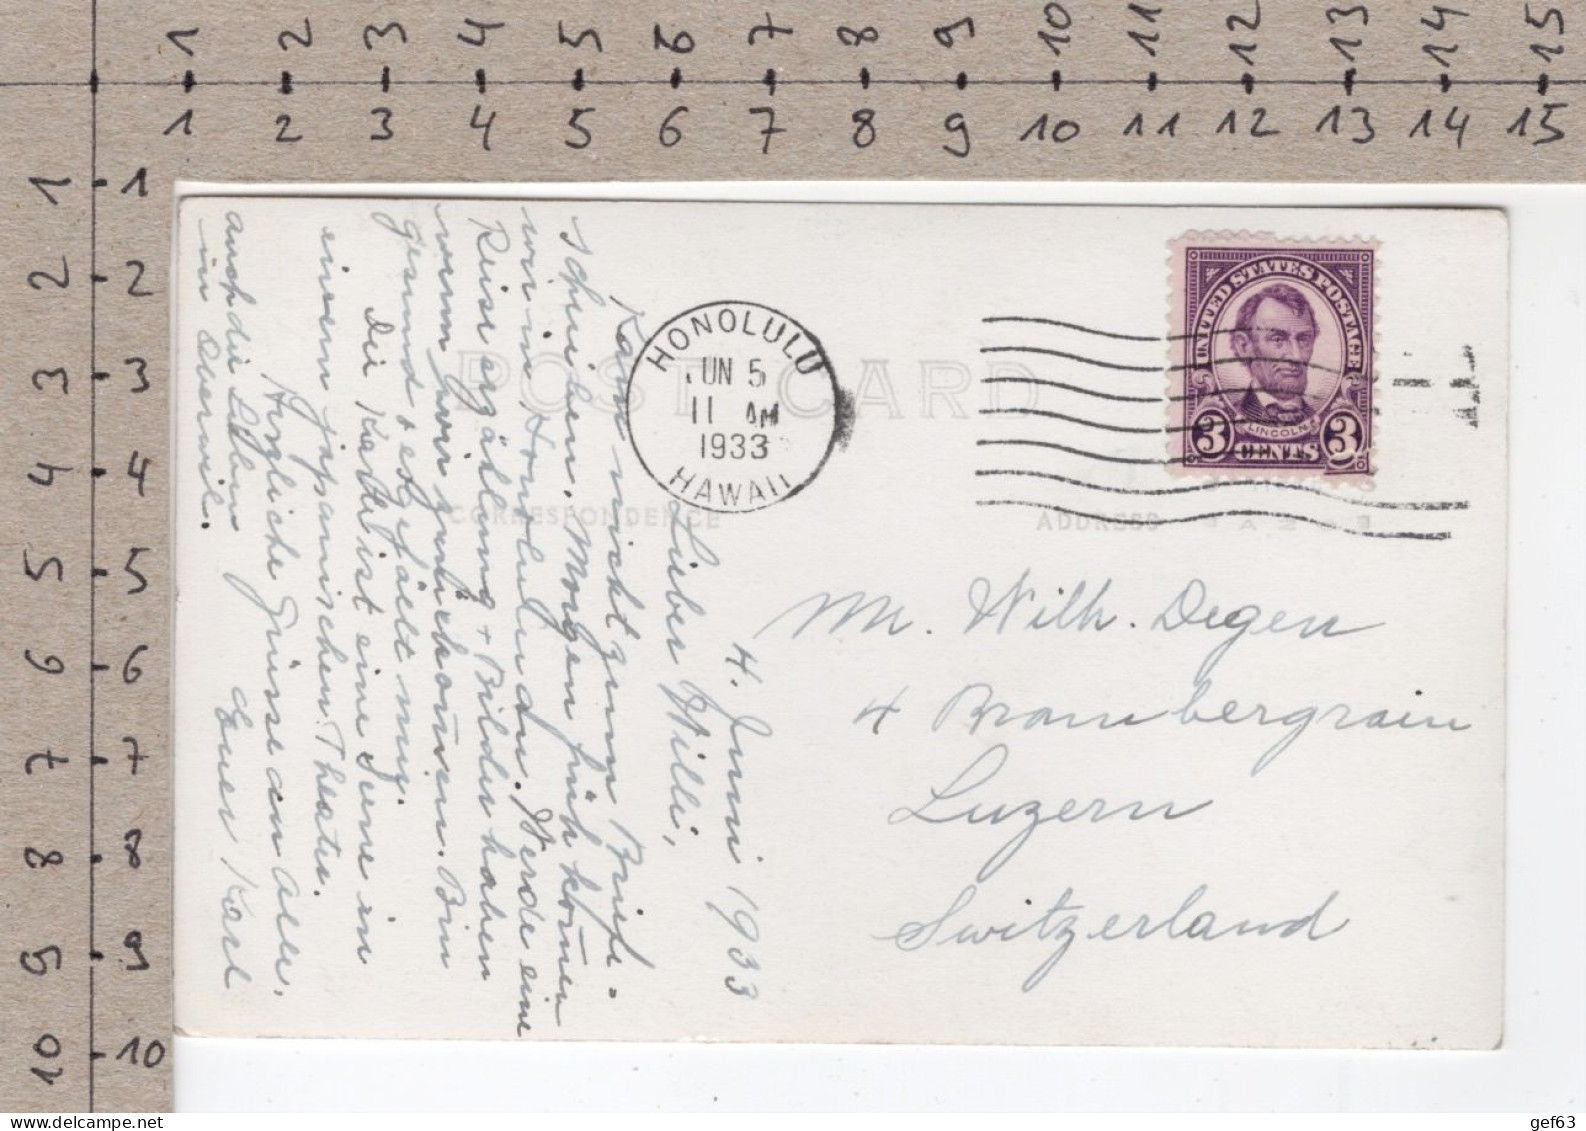 1 2 3 4 5 6 7 8 9 10 11 12 13 14 15
1 2 3 4 5 6 7 8 9 10 11 12 13 14 15
1 1
2 2
3 3
4 4
5 5
6 6
7 7
8 8
9 9
10 10
POST CARD
CORRESPONDENCE
ADDRESS
HONOLULU
UN 5
11 AM
1933
HAWAII
UNITED STATES POSTAGE
LINCOLN
3 CENTS 3
4. Juni 1933
Lieber Willi,
Kann nicht zum Brief-
schreiben. Morgen früh kommen
wir in Honolulu an. Werde eine
Reiseerzählung + Bilder haben
wenn wir zurückommen. Bin
gesund + es gefällt mir.
Die Karte ist eine Scene in
einem japanischen Theater.
Herzliche Grüsse an Alle,
auch die Lieben
in Oberwil.
Euer Karl
Mr. Wilh. Degen
4 Brambergrain
Luzern
Switzerland
Delcampe.net
gef63